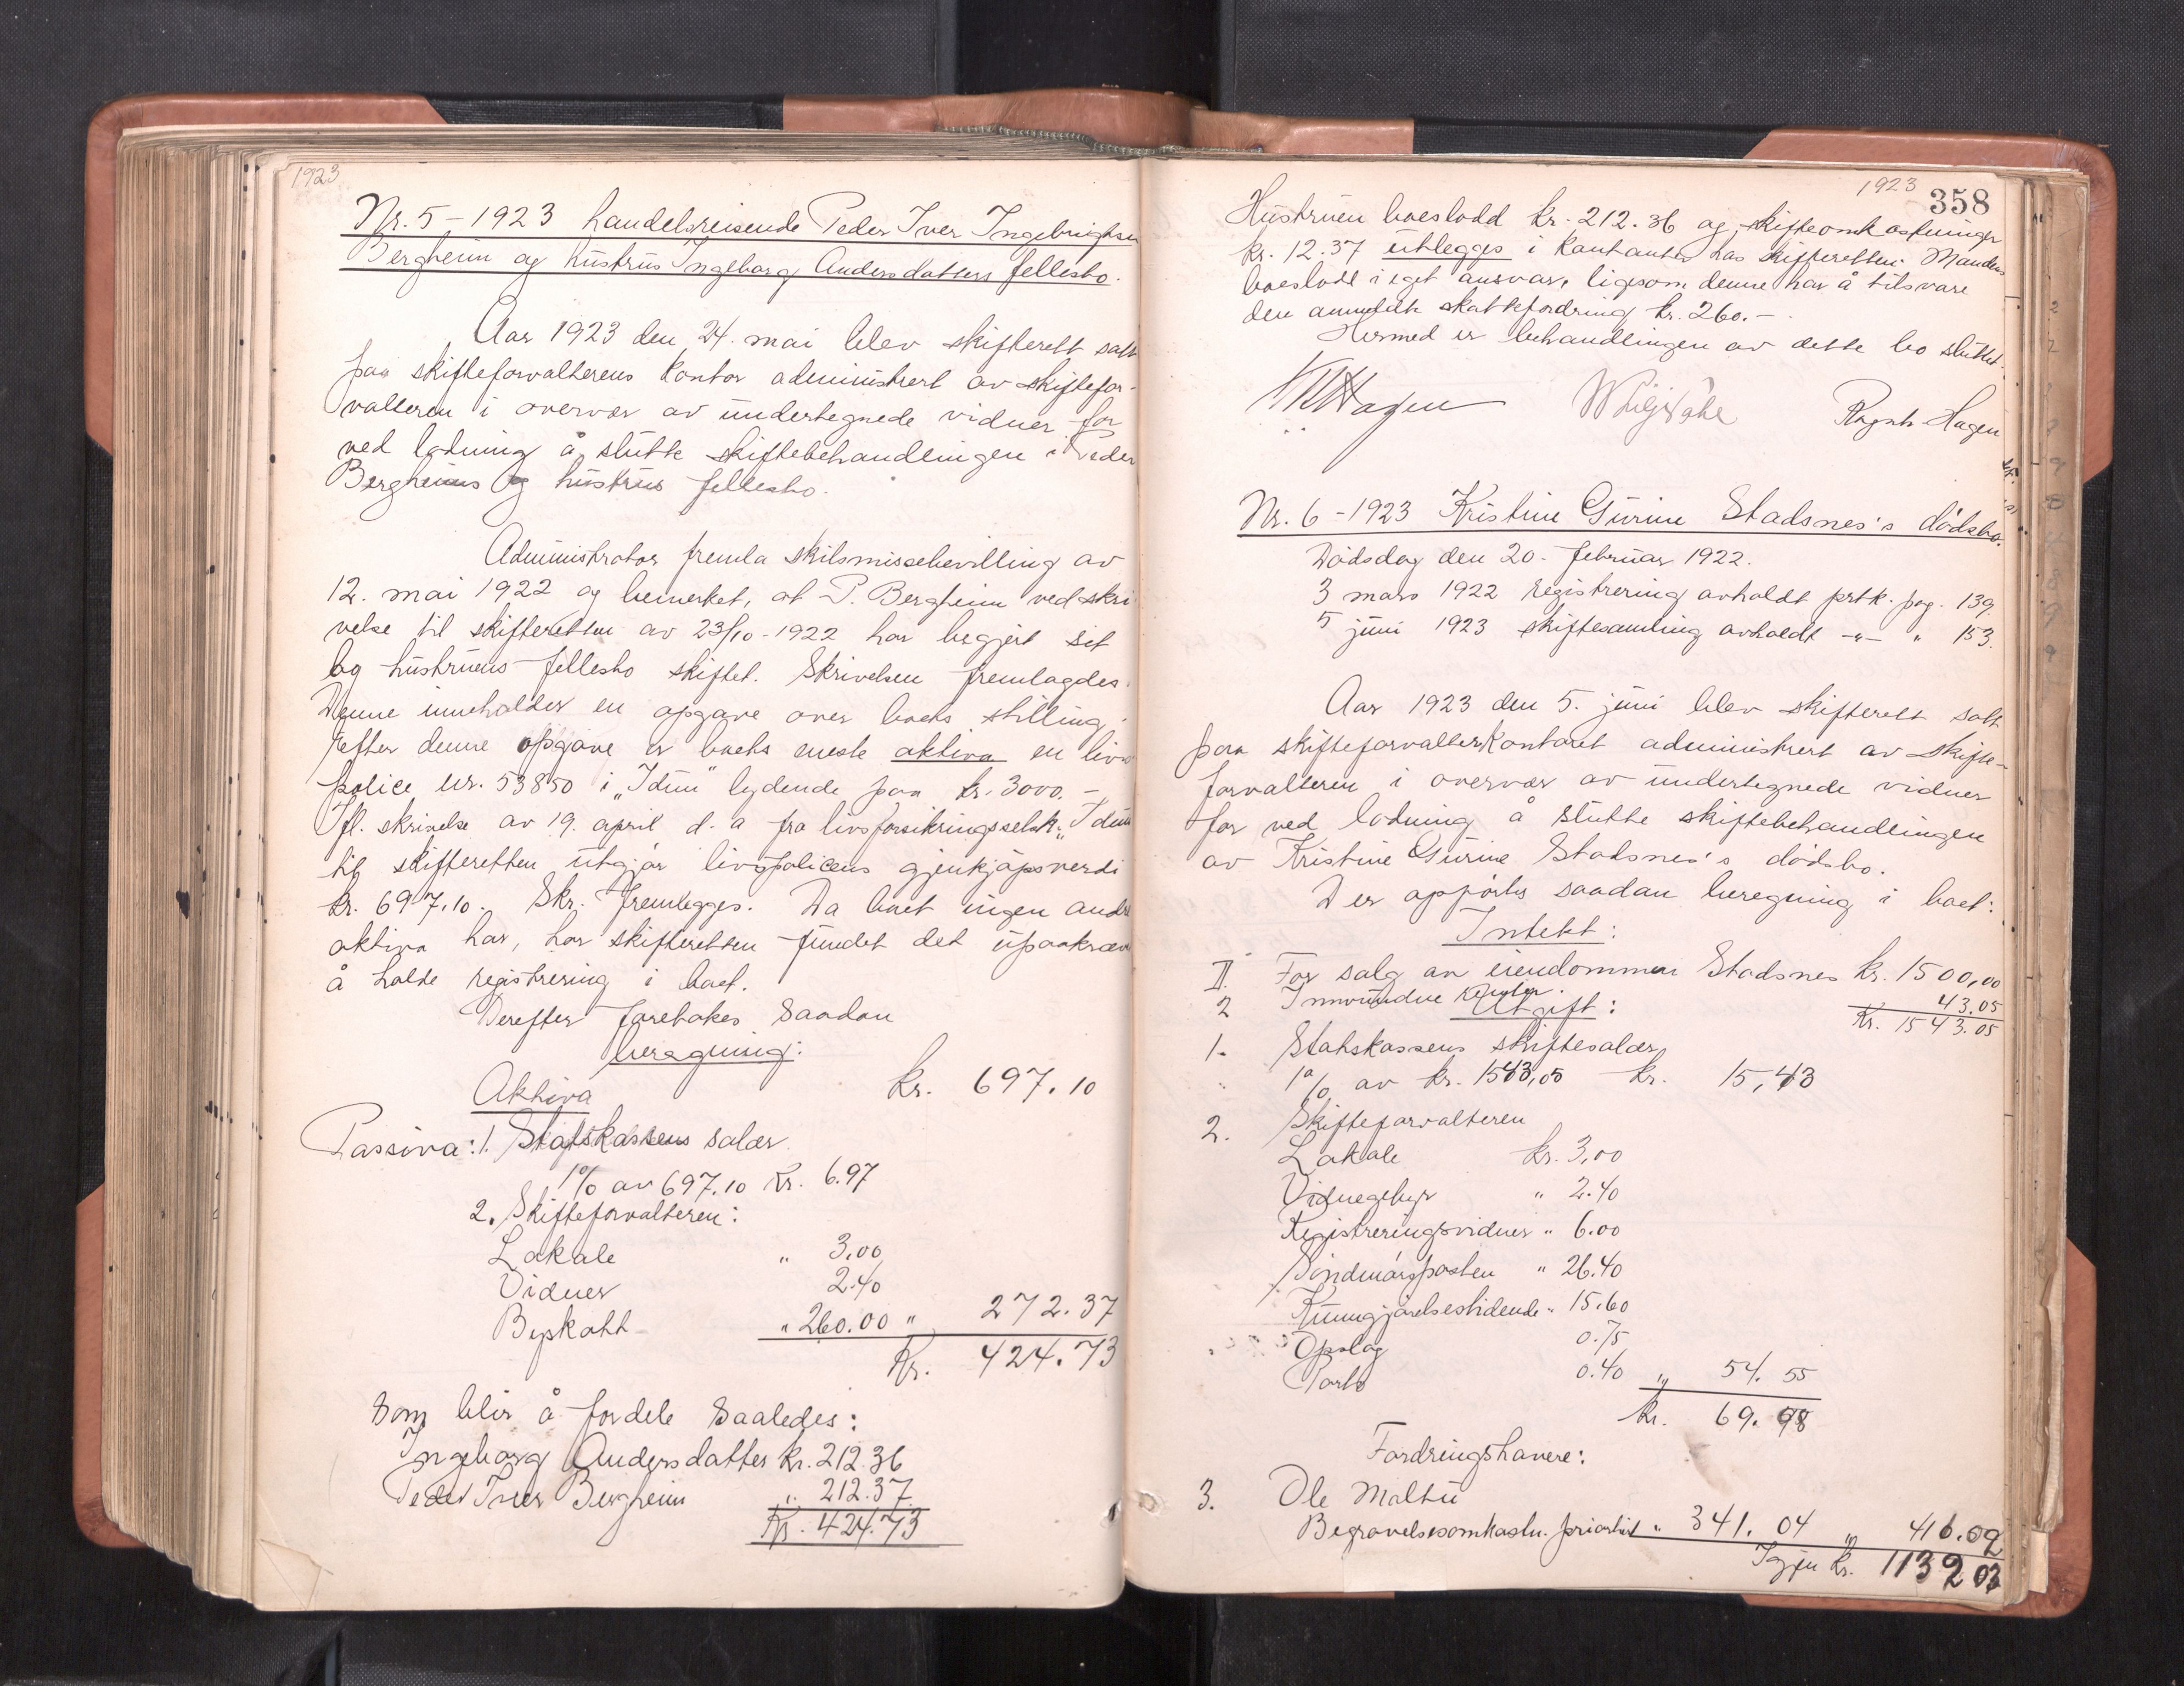 1923
Nr. 5 - 1923 handelsreisende Peder Iver Ingebrigtsen
Bergheim og hustrus Ingeborg Andersdatters fellesbo.
Aar 1923 den 24. mai blev skifterett satt
paa skifteforvalterens kontor administrert av skiftefor-
valteren i overvær av undertegnede vidner for
ved lodning å slutte skiftebehandlingen i Peder
Bergheims og hustrus fellesbo.
Administrator fremla skilsmissebevilling av
12. mai 1922 og bemerket, at P. Bergheim ved skri
velse til skifteretten av 23/10-1922 har begjert sit
og hustruens fellesbo skiftet. Skrivelsen fremlagdes.
Denne inneholder en opgave over boets stilling.
Efter denne opgave er boets eneste aktiva en livs
police nr. 53850 i „Idun" lydende paa kr. 3000.-
Ifl. skrivelse av 19. april d. a fra livsforsikringsselsk. „Idun
til skifteretten utgjør livspolicens gjenkjøpsverdi
kr. 697.10. Skr. fremlegges. Da boet ingen andre
aktiva har, har skifteretten fundet det upaakrævet
å holde registrering i boet.
Derefter foretokes saadan
beregning:
Aktiva kr. 697.10
Passiva: 1. Statskassens salær
1% av 697.10 kr. 6.97
2. Skifteforvalteren:
Lokale " 3.00
Vidner 2.40
Byskatt " 260.00 " 272.37
Kr. 424.73
Som blir å fordele saaledes:
Ingeborg Andersdatter kr. 212.36
Peder Iver Bergheim " 212.37
Kr. 424.73
1923 358
Hustruens boeslodd kr. 212.36 og skifteomkostninger
kr. 12.37 utlegges i kontanter hos skifteretten. Mandens
boeslodd i eget ansvar, ligesom denne har å tilsvare
den anmeldte skattefordring kr. 260.-
Hermed er behandlingen av dette bo sluttet.
Hagen Ragnh. Hagen
Nr. 6 - 1923 Kristine Gurine Stadsnes's dødsbo.
Dødsdag den 20. februar 1922.
3 mars 1922 registrering avholdt prtk. pag. 139.
5 juni 1923 skiftesamling avholdt -"- " 153.
Aar 1923 den 5. juni blev skifterett satt
paa skifteforvalterkontoret administrert av skifte-
forvalteren i overvær av undertegnede vidner
for ved lodning å slutte skiftebehandlingen
av Kristine Gurine Stadsnes's dødsbo.
Der opførtes saadan beregning i boet:
Intekt:
1. For salg av eiendommen Stadsnes kr. 1500,00
2 Innvundne renter. 43.05
Utgift: Kr. 1543.05
1. Statskassens skiftesalær
1% av kr. 1543,05 kr. 15,43
2. Skifteforvalteren
Lokale kr. 3,00
Vidnegebyr " 2.40
Registreringsvidner " 6.00
Søndmørsposten " 26.40
Kunngjørelsestidende " 15.60
Opslag 0.75
Porto 0.40 " 54.55
kr. 69.98
Fordringshavere:
3. Ole Maltu
Begravelsesomkostn. prioritet " 341.04 " 410.02
Igjen kr. 1132 03